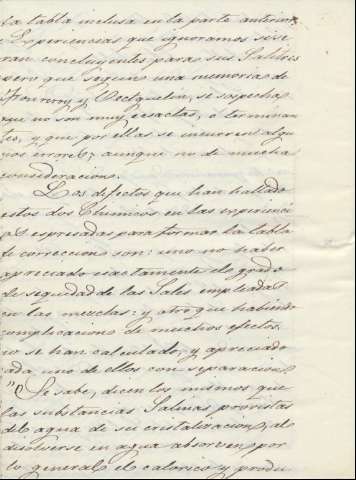 la tabla inclusa en la parte anterior.
Experiencias que ignoramos si se
ran concluyentes para sus Salitres
pero que segun una memoria de
Fourcroy y Vauquelin, se sospecha
que no son muy esactas, ó terminan
tes, y que por ellas se incurren algu
nos errores, aunque no de mucha
consideracion.
Los defectos que han hallado
estos dos Chimicos en las experienci
as espresadas para formar la tabla
de correccions son: uno no haber
apreciado esactamente el grado
de sequedad de las Sales empleadas
en las mezclas: y otro que habiendo
complicacions de muchos efectos,
no se han calculado, y apreciado
cada uno de ellos con separacion.
"Se sabe, dicen los mismos que
las substancias Salinas provistas
del agua de su cristalizacion, al
disolverse en agua absorven por
lo general el calorico y produ